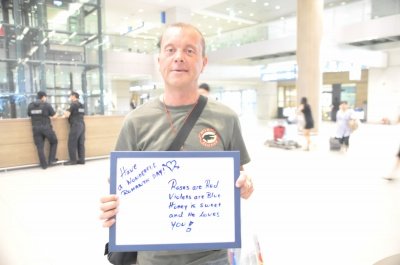 Have
a wonderful
Romanyh day!
Roses are Red
Violets are Blue
Honey is sweet
and He loves
you!